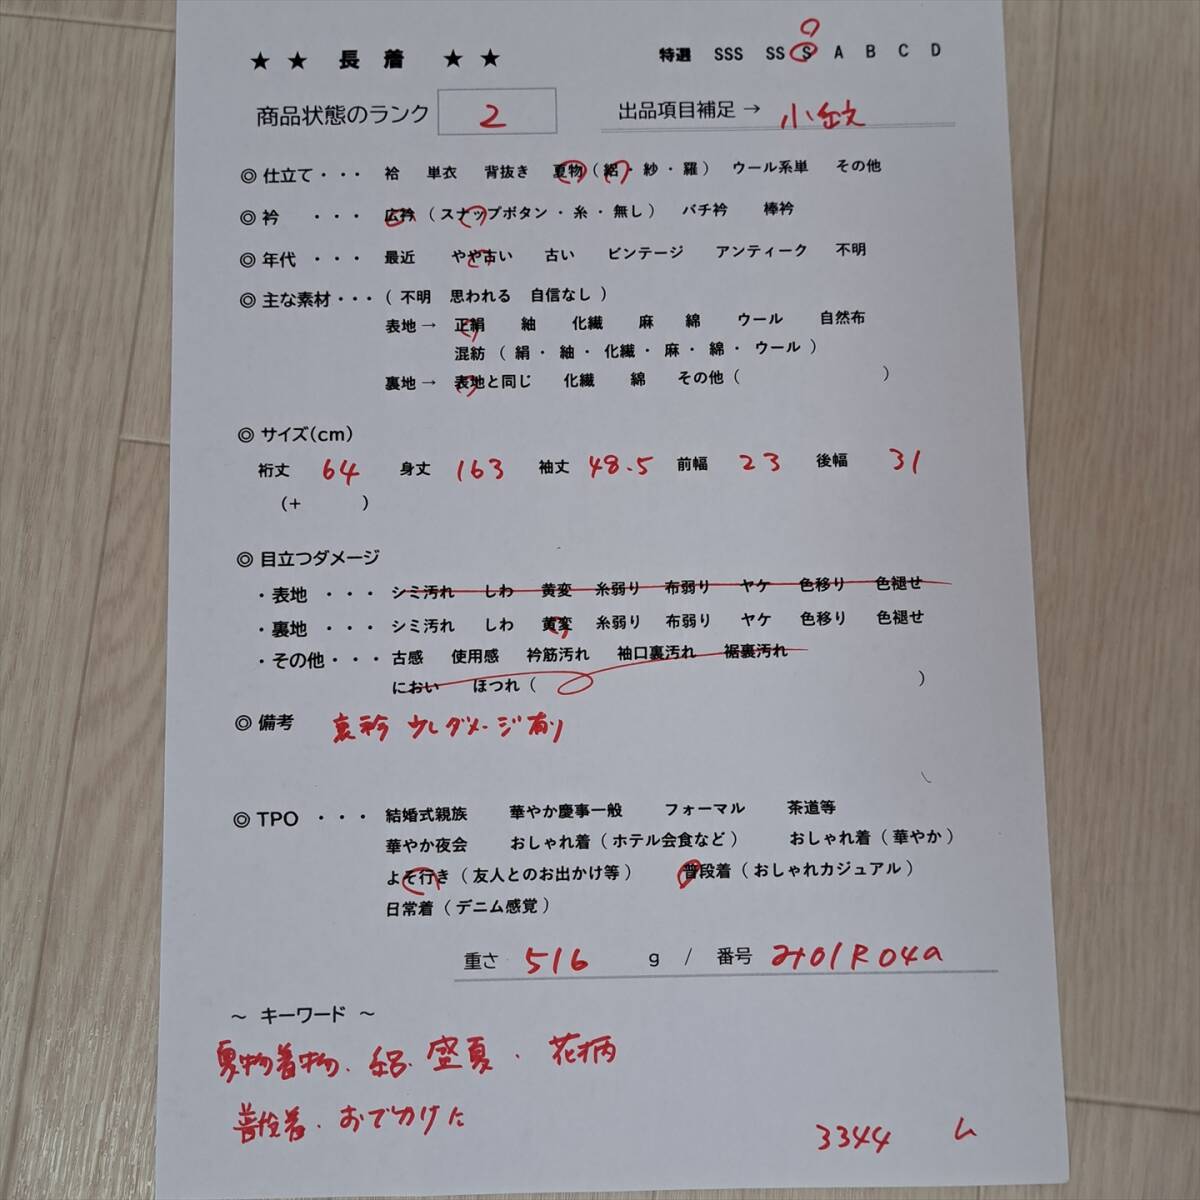 ★ ★ 長 着 ★ ★ 特選 SSS SS S A B C D
商品状態のランク 2 出品項目補足→ 小紋
◎ 仕立て・・・ 袷 単衣 背抜き 夏物 ( 絽・紗・羅 ) ウール系単 その他
◎ 衿 ・・・ 広衿 ( スナップボタン・糸・無し ) バチ衿 棒衿
◎ 年代 ・・・ 最近 やや古い 古い ビンテージ アンティーク 不明
◎ 主な素材・・・ ( 不明 思われる 自信なし )
表地→ 正絹 紬 化繊 麻 綿 ウール 自然布
混紡 ( 絹・紬・化繊・麻・綿・ウール )
裏地→ 表地と同じ 化繊 綿 その他 ( )
◎ サイズ(cm)
裄丈 64 身丈 163 袖丈 48.5 前幅 23 後幅 31
(+ )
◎ 目立つダメージ
・表地 ・・・ シミ汚れ しわ 黄変 糸弱り 布弱り ヤケ 色移り 色褪せ
・裏地 ・・・ シミ汚れ しわ 黄変 糸弱り 布弱り ヤケ 色移り 色褪せ
・その他・・・ 古感 使用感 衿筋汚れ 袖口裏汚れ 裾裏汚れ
におい ほつれ ( )
◎ 備考 裏衿 少しダメージ有り
◎ TPO ・・・ 結婚式親族 華やか慶事一般 フォーマル 茶道等
華やか夜会 おしゃれ着 ( ホテル会食など ) おしゃれ着 ( 華やか )
よそ行き ( 友人とのお出かけ等 ) 普段着 ( おしゃれカジュアル )
日常着 ( デニム感覚 )
重さ 516 g / 番号 み01R04a
～ キーワード ～
夏物着物、絽、盛夏、花柄
普段着、おでかけに
3344 ム